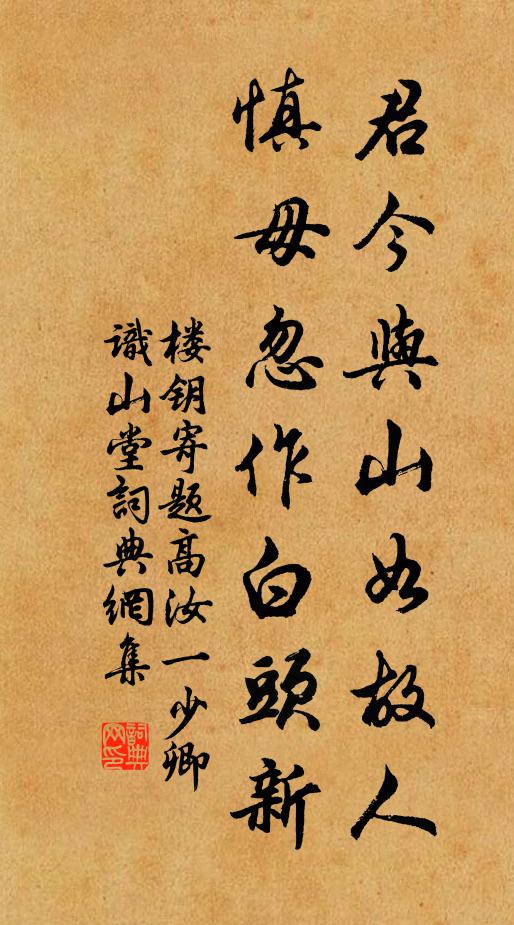 君今與山如故人
慎毋忽作白頭新
楼钥寄题高汝一少卿
識山堂詞典網集
詞典
网印